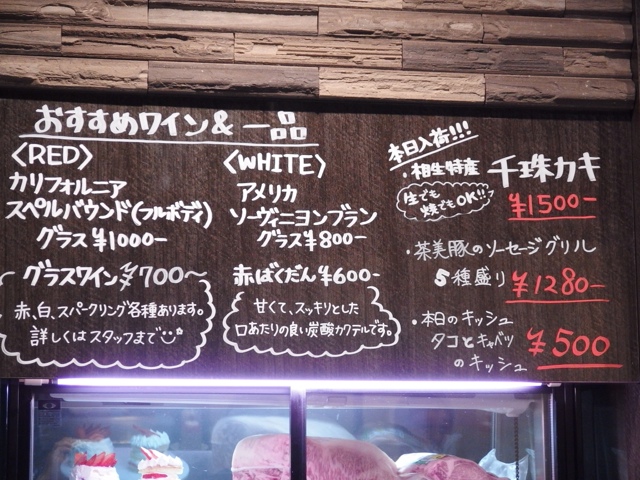 おすすめワイン& 一品
〈RED〉
カリフォルニア
スペルバウンド(フルボディ)
グラス ¥1000-
グラスワイン ¥700〜
赤、白、スパークリング各種あります。
詳しくはスタッフまで
〈WHITE〉
アメリカ
ソーヴィニヨンブラン
グラス ¥800-
赤ばくだん ¥600-
甘くて、スッキリとした
口あたりの良い炭酸カクテルです。
本日入荷!!!
・相生特産 千珠カキ
生でも
焼でもOK!!
¥1500-
・茶美豚のソーセージグリル
5種盛り ¥1280-
・本日のキッシュ
タコとキャベツ
のキッシュ
¥500